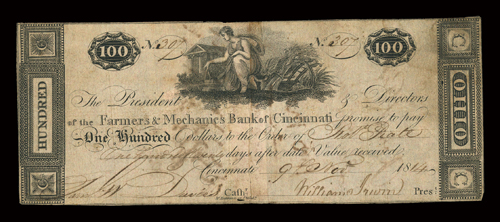 100 No. 397 No. 397 100
HUNDRED
The President & Directors
of the Farmers & Mechanics Bank of Cincinnati promise to pay
One Hundred Dollars to the Order of
days after date Value received
Cincinnati 9th Nov 18
Cashr. William Irwin Prest.
OHIO